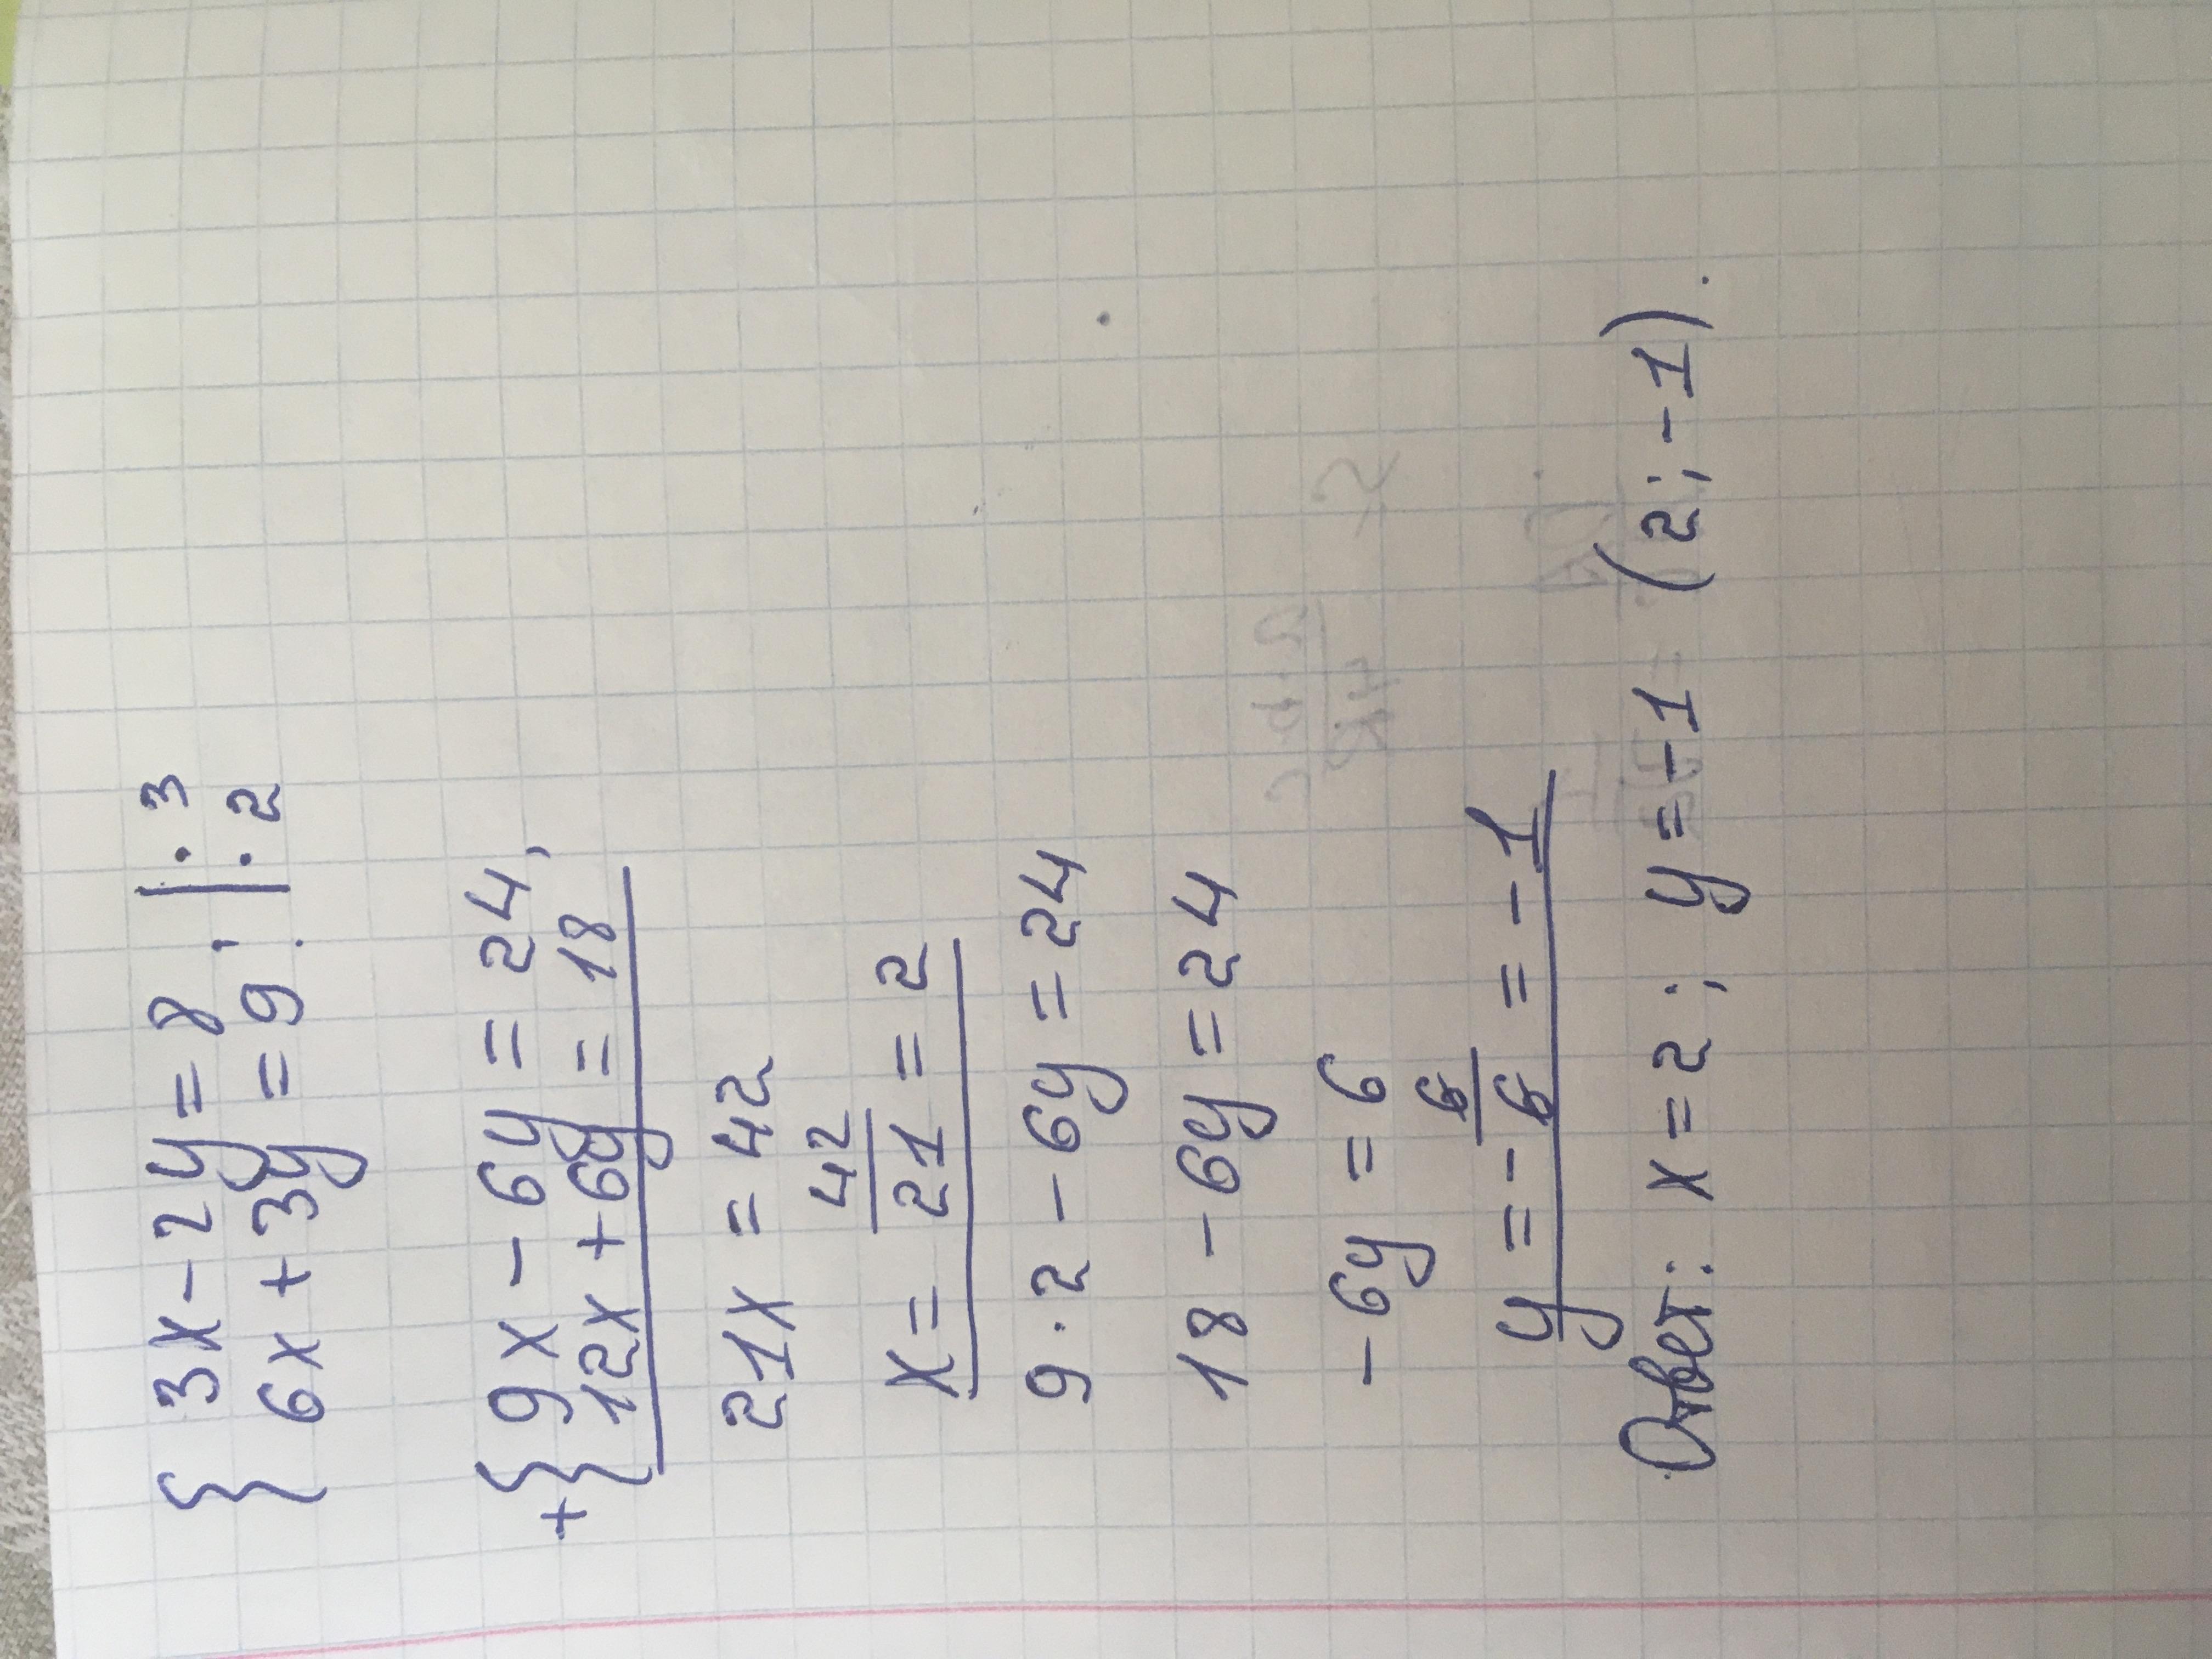 { 3x - 2y = 8, | · 3
6x + 3y = 9. | · 2
+ { 9x - 6y = 24,
12x + 6y = 18
21x = 42
x = 42/21 = 2
9 · 2 - 6y = 24
18 - 6y = 24
- 6y = 6
y = - 6/6 = - 1
Ответ: x = 2; y = -1 (2; -1).